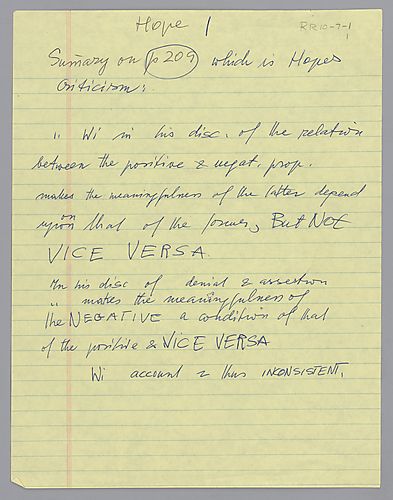 Hope 1
RR10-7-1
1
Summary on p 209 which is Hopes
Criticism:
" Wi in his disc. of the relation
between the positive & negat. prop.
makes the meaningfulness of the latter depend
upon on that of the former, But NOT
VICE VERSA.
In his disc of denial & assertion
" makes the meaningfulness of
the NEGATIVE a condition of that
of the positive & VICE VERSA
Wi account is thus INCONSISTENT.